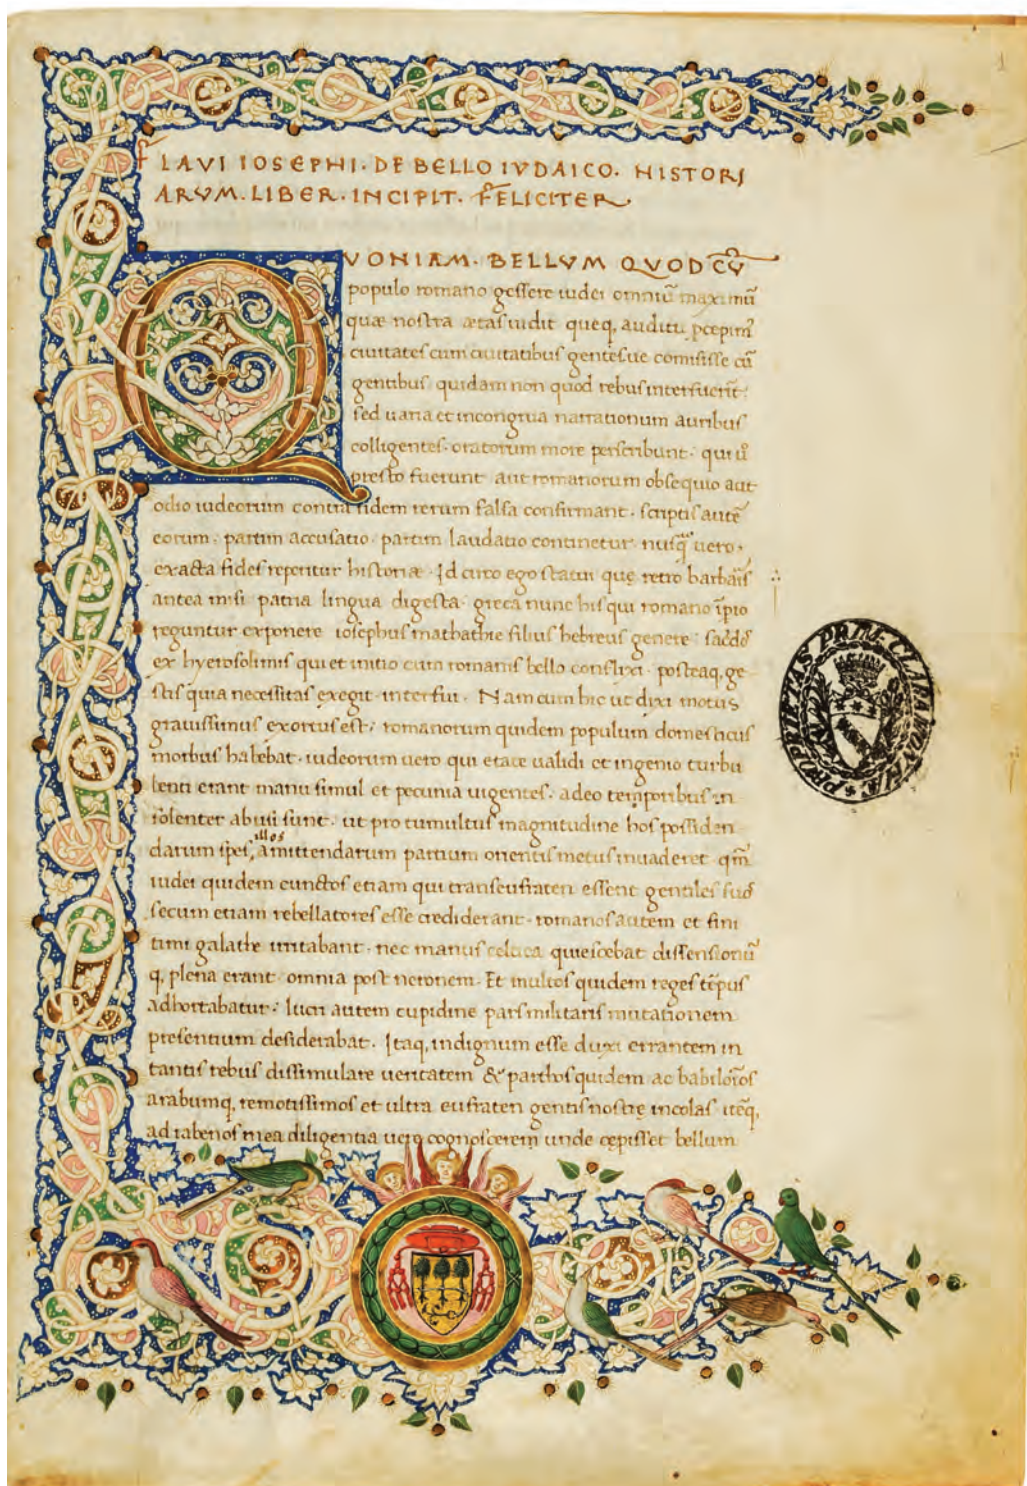 FLAVI IOSEPHI · DE BELLO IVDAICO · HISTORI
ARVM · LIBER · INCIPIT · FELICITER
QVONIAM · BELLVM QVOD CŪ
populo romano gessere iudei omniū maximū
quæ nostra ætas uidit queq, auditu pcepim᷒
ciuitates cum ciuitatibus gentesue comisisse cū
gentibus quidam non quod rebus interfuerīt ·
sed uana et incongrua narrationum auribus
colligentes · oratorum more perscribunt · qui ū
presto fuerunt aut romanorum obsequio aut
odio iudeorum contra fidem rerum falsa confirmant · scriptis autē
eorum · partim accusatio · partim laudatio continetur nusq̄ uero ·
exacta fides reperitur historiæ · Id circo ego statui quę retro barbaīs
antea misi patria lingua digesta · greca nunc his qui romano īpio
reguntur exponere iosephus mathathie filius hebreus genere · sacdos
ex hyerosolimis qui et initio cum romanis bello conflixi · posteaq, ge
stis quia necessitas exegit interfui · Nam cum hic ut dixi motus
grauissimus exortus est : romanorum quidem populum domesticus
morbus habebat · iudeorum uero qui etate ualidi et ingenio turbu
lenti erant manu simul et pecunia uigentes · adeo temporibus in
solenter abusi sunt · ut pro tumultus magnitudine hos possiden
darum spes, illos amittendarum partium orientis metus inuaderet qm̄
iudei quidem cunctos etiam qui trans eufraten essent gentiles suos
secum etiam rebellatores esse crediderant · romanos autem et fini
timi galathe irritabant · nec manus celtica quiescebat dissensionū
q, plena erant omnia post neronem · Et multos quidem reges tēpus
adhortabatur : lucri autem cupidine pars militaris mutationem
presentium desiderabat · Itaq, indignum esse duxi errantem in
tantis rebus dissimulare ueritatem & parthos quidem ac babilōios
arabumq, remotissimos et ultra eufraten gentis nostrę incolas itēq,
adiabenos mea diligentia uere cognoscerem unde cepisset bellum
PROPRIETAS PRIM · CLARAMONTNA
1